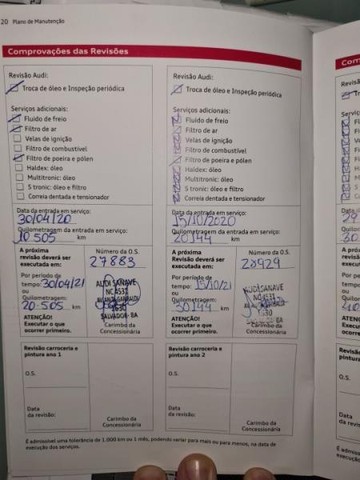 20 Plano de Manutenção
Comprovações das Revisões
Revisão Audi:
Troca de óleo e Inspeção periódica
Serviços adicionais:
Fluido de freio
Filtro de ar
Velas de ignição
Filtro de combustível
Filtro de poeira e pólen
Haldex: óleo
Multitronic: óleo
S tronic: óleo e filtro
Correia dentada e tensionador
Data da entrada em serviço:
30/04/20
Quilometragem da entrada em serviço:
10.505 km
A próxima Revisão deverá ser executada em:
Número da O.S.
27883
Por período de tempo: 30/04/21
ou
Quilometragem:
20.505 km
ATENÇÃO!
Executar o que ocorrer primeiro.
AUDI SANAVE
SALVADOR-BA
Carimbo da Concessionária
Revisão carroceria e pintura ano 1
O.S.
Data da revisão:
Carimbo da Concessionária
Revisão Audi:
Troca de óleo e Inspeção periódica
Serviços adicionais:
Fluido de freio
Filtro de ar
Velas de ignição
Filtro de combustível
Filtro de poeira e pólen
Haldex: óleo
Multitronic: óleo
S tronic: óleo e filtro
Correia dentada e tensionador
Data da entrada em serviço:
15/10/2020
Quilometragem da entrada em serviço:
20144 km
A próxima Revisão deverá ser executada em:
Número da O.S.
28929
Por período de tempo: 15/10/21
ou
Quilometragem:
30144 km
ATENÇÃO!
Executar o que ocorrer primeiro.
AUDI SANAVE
Carimbo da Concessionária
Revisão carroceria e pintura ano 2
O.S.
Data da revisão:
Carimbo da Concessionária
É admissível uma tolerância de 1.000 km ou 1 mês, podendo variar para mais ou para menos, na data de
execução dos serviços.